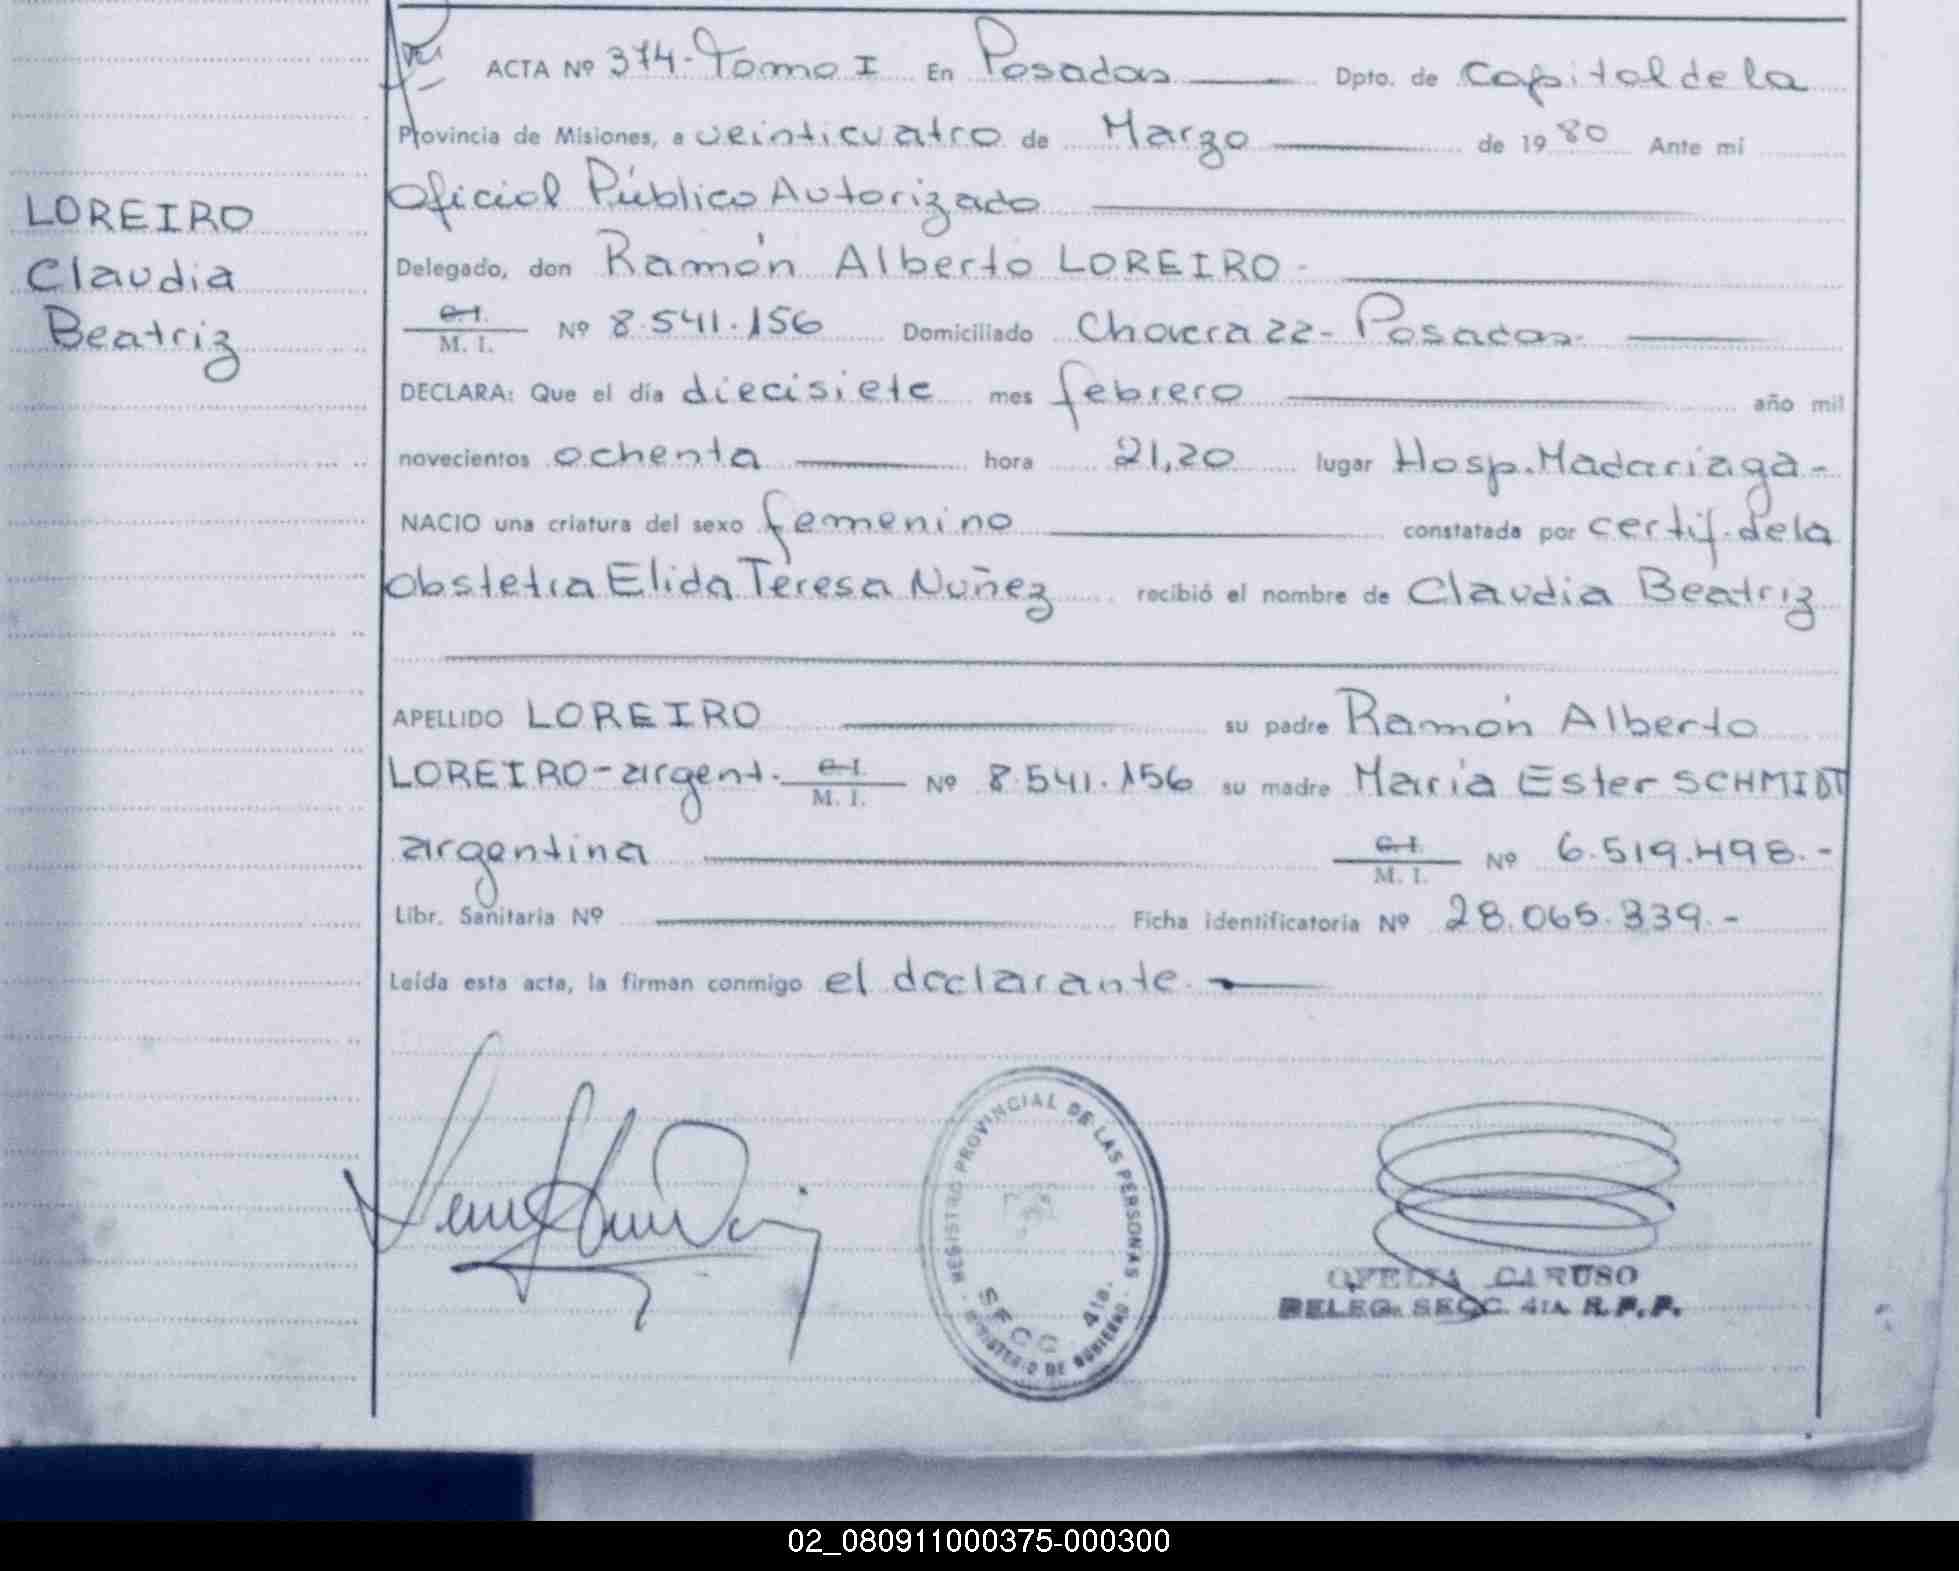 ACTA Nº 374-Tomo I En Posadas Dpto. de Capital de la
Provincia de Misiones, a veinticuatro de Marzo de 19 80 Ante mí
Oficial Público Autorizado
LOREIRO
Claudia
Beatriz
Delegado, don Ramón Alberto LOREIRO-
C.I. M. I. Nº 8.541.156 Domiciliado Chacra 22- Posadas-
DECLARA: Que el día diecisiete mes febrero año mil
novecientos ochenta hora 21,20 lugar Hosp. Madariaga-
NACIO una criatura del sexo femenino constatada por certif. de la
obstetra Elida Teresa Nuñez recibió el nombre de Claudia Beatriz
APELLIDO LOREIRO su padre Ramón Alberto
LOREIRO-argent. C.I. M. I. Nº 8.541.156 su madre María Ester SCHMIDT
argentina C.I. M. I. Nº 6.519.498.-
Libr. Sanitaria Nº Ficha identificatoria Nº 28.065.339.-
Leída esta acta, la firman conmigo el declarante.
REGISTRO PROVINCIAL DE LAS PERSONAS
SECC. 4ta.
MINISTERIO DE GOBIERNO
OFELIA CARUSO
DELEG. SECC. 4TA. R.P.P.
02_080911000375-000300